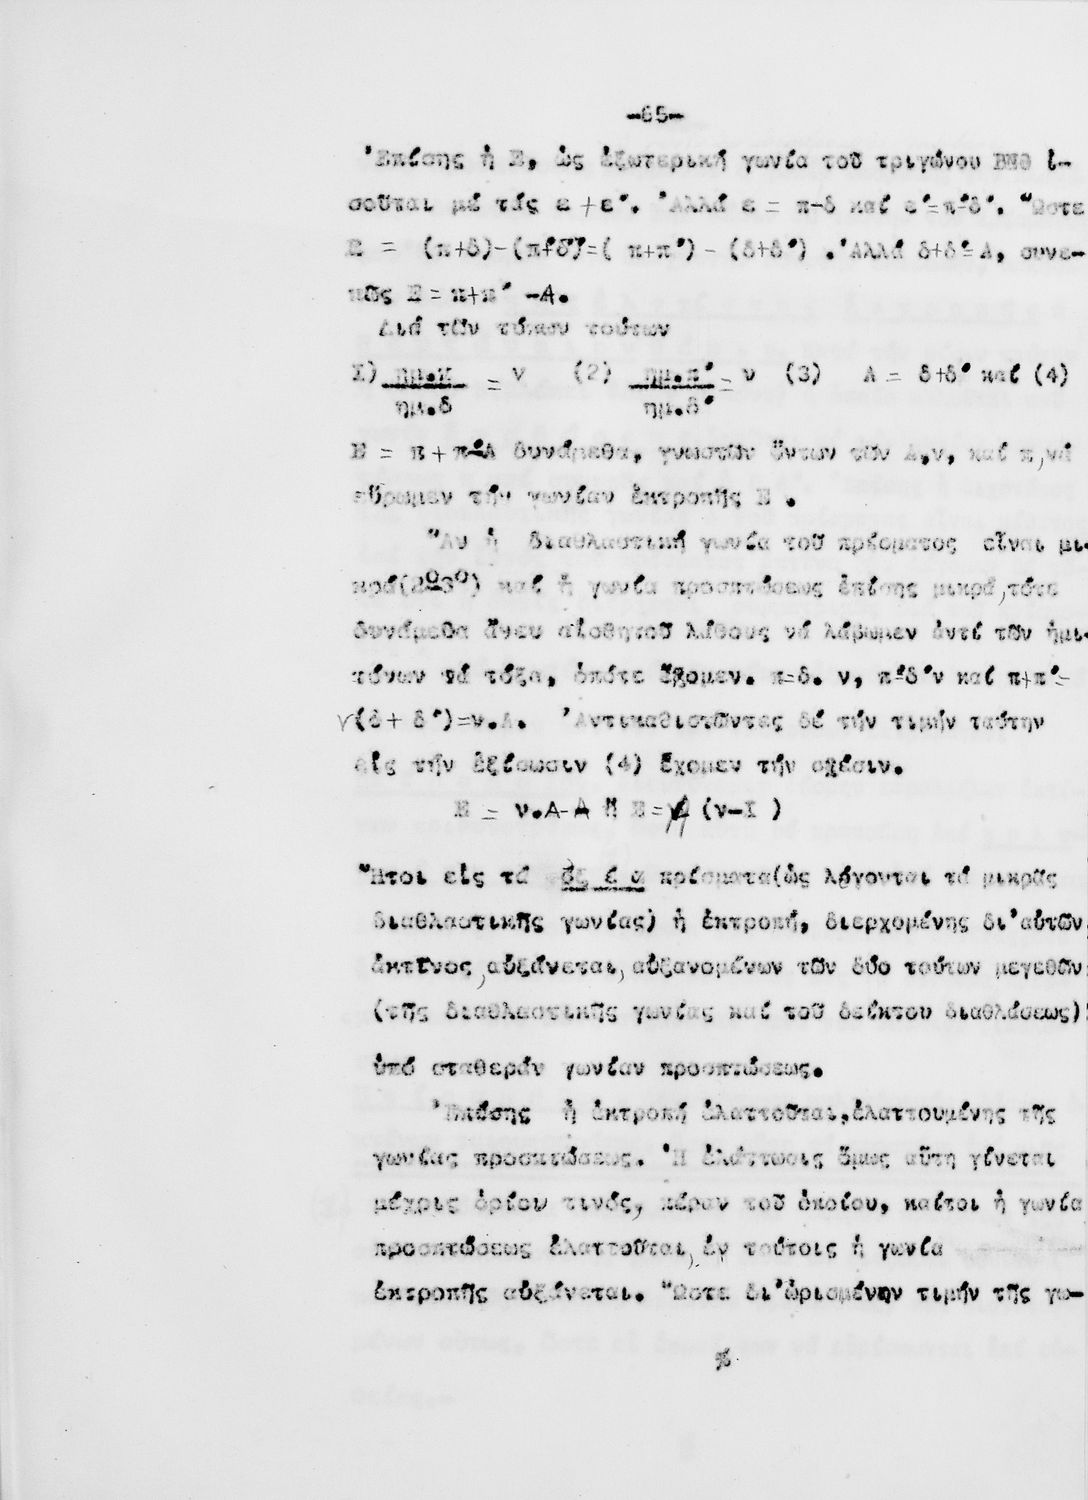 -65-
Ἐπίσης ἡ Ε, ὡς ἐξωτερική γωνία τοῦ τριγώνου ΒΗΘ ἰ-
σοῦται μέ τάς ε+ε΄. Ἀλλά ε = π-δ καί ε΄=π΄-δ΄. Ὥστε
Ε = (π+δ)-(π΄+δ΄)=( π+π΄) - (δ+δ΄) .Ἀλλά δ+δ΄=Α, συνε-
πῶς Ε = π+π΄ -Α.
Διά τῶν τύπων τούτων
Ι) ημ.π / ημ.δ = ν (2) ημ.π΄ / ημ.δ΄ = ν (3) Α = δ+δ΄ καί (4)
Ε = π + π΄-Α δυνάμεθα, γνωστῶν ὄντων τῶν Α,ν, καί π,νά
εὕρωμεν τήν γωνίαν ἐκτροπῆς Ε .
Ἄν ἡ διαθλαστική γωνία τοῦ πρίσματος εἶναι μι-
κρά(2º3º) καί ἡ γωνία προσπτώσεως ἐπίσης μικρά,τότε
δυνάμεθα ἄνευ αἰσθητοῦ λάθους νά λάβωμεν ἀντί τῶν ἡμι-
τόνων τά τόξα, ὁπότε ἔχομεν. π=δ. ν, π΄=δ΄ν καί π+π΄=
ν(δ+ δ΄)=ν.Α. Ἀντικαθιστῶντες δέ τήν τιμήν ταύτην
εἰς τήν ἐξίσωσιν (4) ἔχομεν τήν σχέσιν.
Ε = ν.Α-Α ἤ Ε=Α (ν-Ι )
Ἤτοι εἰς τά ὀξ έ α πρίσματα(ὡς λέγονται τά μικρᾶς
διαθλαστικῆς γωνίας) ἡ ἐκτροπή, διερχομένης δι'αὐτῶν
ἀκτῖνος,αὐξάνεται,αὐξανομένων τῶν δύο τούτων μεγεθῶν
(τῆς διαθλαστικῆς γωνίας καί τοῦ δείκτου διαθλάσεως)
ὑπό σταθεράν γωνίαν προσπτώσεως.
Ἐπίσης ἡ ἐκτροπή ἐλαττοῦται,ἐλαττουμένης τῆς
γωνίας προσπτώσεως. Ἡ ἐλάττωσις ὅμως αὕτη γίνεται
μέχρις ὁρίου τινός, πέραν τοῦ ὁποίου, καίτοι ἡ γωνία
προσπτώσεως ἐλαττοῦται, ἐν τούτοις ἡ γωνία
ἐκτροπῆς αὐξάνεται. Ὥστε δι'ὡρισμένην τιμήν τῆς γω-